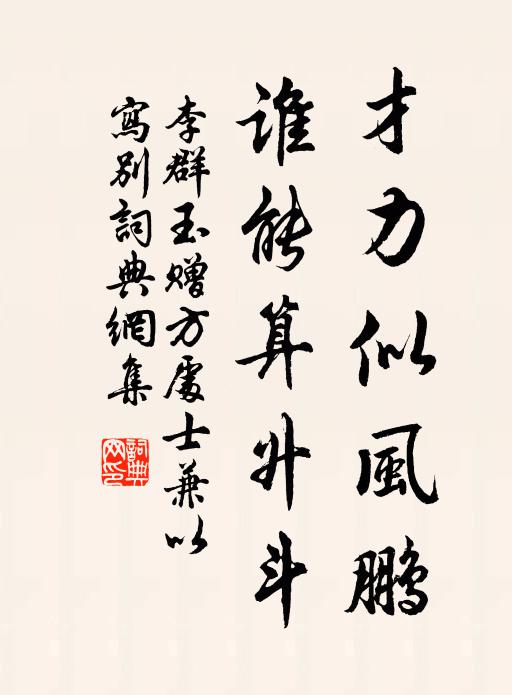 才力似風鵬
誰能算升斗
李群玉贈方處士兼以
寫別詞典網集
詞典網印